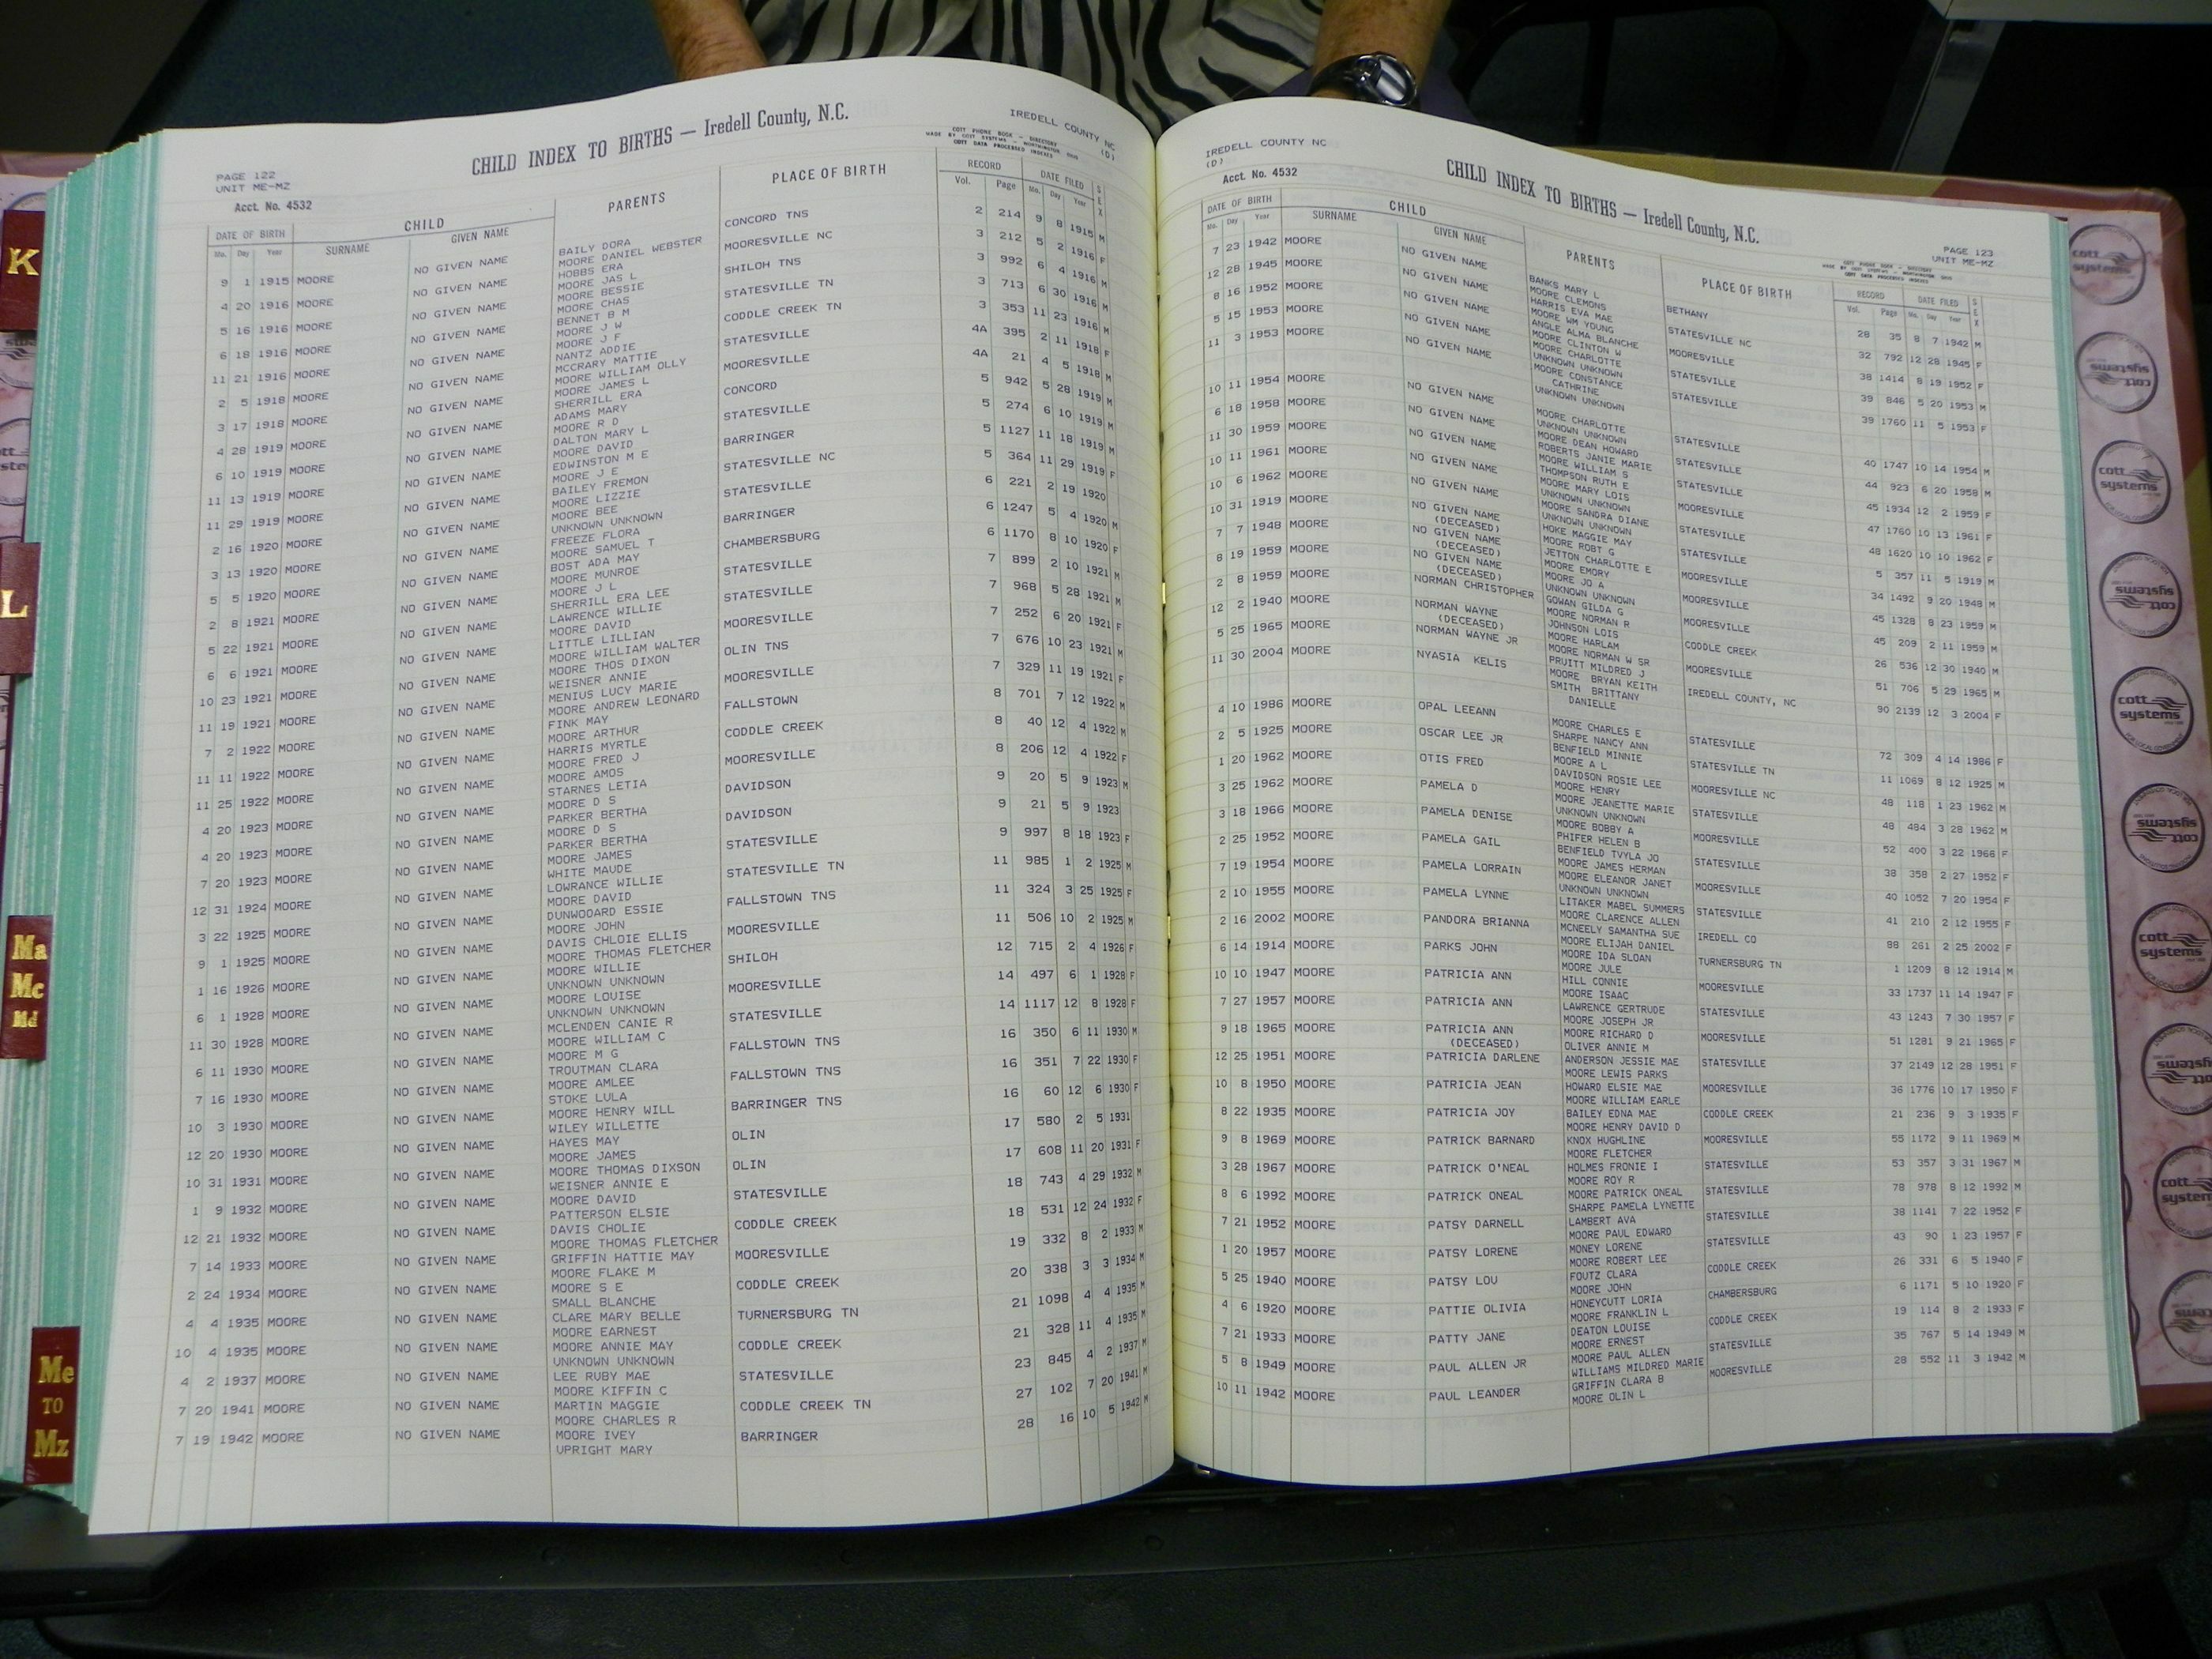 IREDELL COUNTY NC
(D)
COTT PHONE BOOK - DIRECTORY
MADE BY COTT SYSTEMS - WORTHINGTON OHIO
COTT DATA PROCESSED INDEXES
CHILD INDEX TO BIRTHS — Iredell County, N.C.
PAGE 122
UNIT ME-MZ
Acct. No. 4532
DATE OF BIRTH CHILD PARENTS PLACE OF BIRTH RECORD DATE FILED SEX
Mo. Day Year SURNAME GIVEN NAME Vol. Page Mo. Day Year
9 1 1915 MOORE NO GIVEN NAME BAILY DORA CONCORD TNS 2 214 9 8 1915 M
MOORE DANIEL WEBSTER
4 20 1916 MOORE NO GIVEN NAME HOBBS ERA MOORESVILLE NC 3 212 5 2 1916 F
MOORE JAS L
5 16 1916 MOORE NO GIVEN NAME MOORE BESSIE SHILOH TNS 3 992 6 4 1916 M
MOORE CHAS
6 18 1916 MOORE NO GIVEN NAME BENNET B M STATESVILLE TN 3 713 6 30 1916 M
MOORE J W
11 21 1916 MOORE NO GIVEN NAME MOORE J F CODDLE CREEK TN 3 353 11 23 1916 M
NANTZ ADDIE
2 5 1918 MOORE NO GIVEN NAME MCCRARY MATTIE STATESVILLE 4A 395 2 11 1918 F
MOORE WILLIAM OLLY
3 17 1918 MOORE NO GIVEN NAME MOORE JAMES L MOORESVILLE 4A 21 4 5 1918 M
SHERRILL ERA
4 28 1919 MOORE NO GIVEN NAME ADAMS MARY CONCORD 5 942 5 28 1919 M
MOORE R D
6 10 1919 MOORE NO GIVEN NAME DALTON MARY L STATESVILLE 5 274 6 10 1919 M
MOORE DAVID
11 13 1919 MOORE NO GIVEN NAME EDWINSTON M E BARRINGER 5 1127 11 18 1919 M
MOORE J E
11 29 1919 MOORE NO GIVEN NAME BAILEY FREMON STATESVILLE NC 5 364 11 29 1919 F
MOORE LIZZIE
2 16 1920 MOORE NO GIVEN NAME MOORE BEE STATESVILLE 6 221 2 19 1920
UNKNOWN UNKNOWN
3 13 1920 MOORE NO GIVEN NAME FREEZE FLORA BARRINGER 6 1247 5 4 1920 M
MOORE SAMUEL T
5 5 1920 MOORE NO GIVEN NAME BOST ADA MAY CHAMBERSBURG 6 1170 8 10 1920 F
MOORE MUNROE
2 8 1921 MOORE NO GIVEN NAME MOORE J L STATESVILLE 7 899 2 10 1921 M
SHERRILL ERA LEE
5 22 1921 MOORE NO GIVEN NAME LAWRENCE WILLIE STATESVILLE 7 968 5 28 1921 M
MOORE DAVID
6 6 1921 MOORE NO GIVEN NAME LITTLE LILLIAN MOORESVILLE 7 252 6 20 1921 F
MOORE WILLIAM WALTER
10 23 1921 MOORE NO GIVEN NAME MOORE THOS DIXON OLIN TNS 7 676 10 23 1921 M
WEISNER ANNIE
11 19 1921 MOORE NO GIVEN NAME MENIUS LUCY MARIE MOORESVILLE 7 329 11 19 1921 F
MOORE ANDREW LEONARD
7 2 1922 MOORE NO GIVEN NAME FINK MAY FALLSTOWN 8 701 7 12 1922 M
MOORE ARTHUR
11 11 1922 MOORE NO GIVEN NAME HARRIS MYRTLE CODDLE CREEK 8 40 12 4 1922 M
MOORE FRED J
11 25 1922 MOORE NO GIVEN NAME MOORE AMOS MOORESVILLE 8 206 12 4 1922 F
STARNES LETIA
4 20 1923 MOORE NO GIVEN NAME MOORE D S DAVIDSON 9 20 5 9 1923 M
PARKER BERTHA
4 20 1923 MOORE NO GIVEN NAME MOORE D S DAVIDSON 9 21 5 9 1923
PARKER BERTHA
7 20 1923 MOORE NO GIVEN NAME MOORE JAMES STATESVILLE 9 997 8 18 1923 F
WHITE MAUDE
12 31 1924 MOORE NO GIVEN NAME LOWRANCE WILLIE STATESVILLE TN 11 985 1 2 1925 M
MOORE DAVID
3 22 1925 MOORE NO GIVEN NAME DUNWOOARD ESSIE FALLSTOWN TNS 11 324 3 25 1925 F
MOORE JOHN
9 1 1925 MOORE NO GIVEN NAME DAVIS CHLOIE ELLIS MOORESVILLE 11 506 10 2 1925 M
MOORE THOMAS FLETCHER
1 16 1926 MOORE NO GIVEN NAME MOORE WILLIE SHILOH 12 715 2 4 1926 F
UNKNOWN UNKNOWN
6 1 1928 MOORE NO GIVEN NAME MOORE LOUISE MOORESVILLE 14 497 6 1 1928 F
UNKNOWN UNKNOWN
11 30 1928 MOORE NO GIVEN NAME MCLENDEN CANIE R STATESVILLE 14 1117 12 8 1928 F
MOORE WILLIAM C
6 11 1930 MOORE NO GIVEN NAME MOORE M G FALLSTOWN TNS 16 350 6 11 1930 M
TROUTMAN CLARA
7 16 1930 MOORE NO GIVEN NAME MOORE AMLEE FALLSTOWN TNS 16 351 7 22 1930 F
STOKE LULA
10 3 1930 MOORE NO GIVEN NAME MOORE HENRY WILL BARRINGER TNS 16 60 12 6 1930 F
WILEY WILLETTE
12 20 1930 MOORE NO GIVEN NAME HAYES MAY OLIN 17 580 2 5 1931
MOORE JAMES
10 31 1931 MOORE NO GIVEN NAME MOORE THOMAS DIXSON OLIN 17 608 11 20 1931 F
WEISNER ANNIE E
1 9 1932 MOORE NO GIVEN NAME MOORE DAVID STATESVILLE 18 743 4 29 1932 M
PATTERSON ELSIE
12 21 1932 MOORE NO GIVEN NAME DAVIS CHOLIE CODDLE CREEK 18 531 12 24 1932 F
MOORE THOMAS FLETCHER
7 14 1933 MOORE NO GIVEN NAME GRIFFIN HATTIE MAY MOORESVILLE 19 332 8 2 1933 M
MOORE FLAKE M
2 24 1934 MOORE NO GIVEN NAME MOORE S E CODDLE CREEK 20 338 3 3 1934 M
SMALL BLANCHE
4 4 1935 MOORE NO GIVEN NAME CLARE MARY BELLE TURNERSBURG TN 21 1098 4 4 1935 M
MOORE EARNEST
10 4 1935 MOORE NO GIVEN NAME MOORE ANNIE MAY CODDLE CREEK 21 328 11 4 1935 M
UNKNOWN UNKNOWN
4 2 1937 MOORE NO GIVEN NAME LEE RUBY MAE STATESVILLE 23 845 4 2 1937 M
MOORE KIFFIN C
7 20 1941 MOORE NO GIVEN NAME MARTIN MAGGIE CODDLE CREEK TN 27 102 7 20 1941 M
MOORE CHARLES R
7 19 1942 MOORE NO GIVEN NAME MOORE IVEY BARRINGER 28 16 10 5 1942 M
UPRIGHT MARY
IREDELL COUNTY NC
(D)
Acct. No. 4532
CHILD INDEX TO BIRTHS — Iredell County, N.C.
PAGE 123
UNIT ME-MZ
COTT PHONE BOOK - DIRECTORY
MADE BY COTT SYSTEMS - WORTHINGTON OHIO
COTT DATA PROCESSED INDEXES
DATE OF BIRTH CHILD PARENTS PLACE OF BIRTH RECORD DATE FILED SEX
Mo. Day Year SURNAME GIVEN NAME Vol. Page Mo. Day Year
7 23 1942 MOORE NO GIVEN NAME BANKS MARY L BETHANY 28 35 8 7 1942 M
MOORE CLEMONS
12 28 1945 MOORE NO GIVEN NAME HARRIS EVA MAE STATESVILLE NC 32 792 12 28 1945 F
MOORE WM YOUNG
8 16 1952 MOORE NO GIVEN NAME ANGLE ALMA BLANCHE MOORESVILLE 38 1414 8 19 1952 F
MOORE CLINTON W
5 15 1953 MOORE NO GIVEN NAME MOORE CHARLOTTE STATESVILLE 39 846 5 20 1953 M
UNKNOWN UNKNOWN
11 3 1953 MOORE NO GIVEN NAME MOORE CONSTANCE STATESVILLE 39 1760 11 5 1953 F
CATHRINE
UNKNOWN UNKNOWN
10 11 1954 MOORE NO GIVEN NAME MOORE CHARLOTTE STATESVILLE 40 1747 10 14 1954 M
UNKNOWN UNKNOWN
6 18 1958 MOORE NO GIVEN NAME MOORE DEAN HOWARD STATESVILLE 44 923 6 20 1958 M
ROBERTS JANIE MARIE
11 30 1959 MOORE NO GIVEN NAME MOORE WILLIAM S STATESVILLE 45 1934 12 2 1959 F
THOMPSON RUTH E
10 11 1961 MOORE NO GIVEN NAME MOORE MARY LOIS MOORESVILLE 47 1760 10 13 1961 F
UNKNOWN UNKNOWN
10 6 1962 MOORE NO GIVEN NAME MOORE SANDRA DIANE STATESVILLE 48 1620 10 10 1962 F
UNKNOWN UNKNOWN
10 31 1919 MOORE NO GIVEN NAME HOKE MAGGIE MAY STATESVILLE 5 357 11 5 1919 M
(DECEASED) MOORE ROBT G
7 7 1948 MOORE NO GIVEN NAME JETTON CHARLOTTE E MOORESVILLE 34 1492 9 20 1948 M
(DECEASED) MOORE EMORY
8 19 1959 MOORE NO GIVEN NAME MOORE JO A MOORESVILLE 45 1328 8 23 1959 M
(DECEASED) UNKNOWN UNKNOWN
2 8 1959 MOORE NORMAN CHRISTOPHER GOWAN GILDA G MOORESVILLE 45 209 2 11 1959 M
MOORE NORMAN R
12 2 1940 MOORE NORMAN WAYNE JOHNSON LOIS CODDLE CREEK 26 536 12 30 1940 M
(DECEASED) MOORE HARLAM
5 25 1965 MOORE NORMAN WAYNE JR MOORE NORMAN W SR MOORESVILLE 51 706 5 29 1965 M
PRUITT MILDRED J
11 30 2004 MOORE NYASIA KELIS MOORE BRYAN KEITH IREDELL COUNTY, NC 90 2139 12 3 2004 F
SMITH BRITTANY
DANIELLE
4 10 1986 MOORE OPAL LEEANN MOORE CHARLES E STATESVILLE 72 309 4 14 1986 F
SHARPE NANCY ANN
2 5 1925 MOORE OSCAR LEE JR BENFIELD MINNIE STATESVILLE TN 11 1069 8 12 1925 M
MOORE A L
1 20 1962 MOORE OTIS FRED DAVIDSON ROSIE LEE MOORESVILLE NC 48 118 1 23 1962 M
MOORE HENRY
3 25 1962 MOORE PAMELA D MOORE JEANETTE MARIE STATESVILLE 48 484 3 28 1962 M
UNKNOWN UNKNOWN
3 18 1966 MOORE PAMELA DENISE MOORE BOBBY A MOORESVILLE 52 400 3 22 1966 F
PHIFER HELEN B
2 25 1952 MOORE PAMELA GAIL BENFIELD TVYLA JO STATESVILLE 38 358 2 27 1952 F
MOORE JAMES HERMAN
7 19 1954 MOORE PAMELA LORRAIN MOORE ELEANOR JANET MOORESVILLE 40 1052 7 20 1954 F
UNKNOWN UNKNOWN
2 10 1955 MOORE PAMELA LYNNE LITAKER MABEL SUMMERS STATESVILLE 41 210 2 12 1955 F
MOORE CLARENCE ALLEN
2 16 2002 MOORE PANDORA BRIANNA MCNEELY SAMANTHA SUE IREDELL CO 88 261 2 25 2002 F
MOORE ELIJAH DANIEL
6 14 1914 MOORE PARKS JOHN MOORE IDA SLOAN TURNERSBURG TN 1 1209 8 12 1914 M
MOORE JULE
10 10 1947 MOORE PATRICIA ANN HILL CONNIE MOORESVILLE 33 1737 11 14 1947 F
MOORE ISAAC
7 27 1957 MOORE PATRICIA ANN LAWRENCE GERTRUDE STATESVILLE 43 1243 7 30 1957 F
MOORE JOSEPH JR
9 18 1965 MOORE PATRICIA ANN MOORE RICHARD D MOORESVILLE 51 1281 9 21 1965 F
(DECEASED) OLIVER ANNIE M
12 25 1951 MOORE PATRICIA DARLENE ANDERSON JESSIE MAE STATESVILLE 37 2149 12 28 1951 F
MOORE LEWIS PARKS
10 8 1950 MOORE PATRICIA JEAN HOWARD ELSIE MAE MOORESVILLE 36 1776 10 17 1950 F
MOORE WILLIAM EARLE
8 22 1935 MOORE PATRICIA JOY BAILEY EDNA MAE CODDLE CREEK 21 236 9 3 1935 F
MOORE HENRY DAVID D
9 8 1969 MOORE PATRICK BARNARD KNOX HUGHLINE MOORESVILLE 55 1172 9 11 1969 M
MOORE FLETCHER
3 28 1967 MOORE PATRICK O'NEAL HOLMES FRONIE I STATESVILLE 53 357 3 31 1967 M
MOORE ROY R
8 6 1992 MOORE PATRICK ONEAL MOORE PATRICK ONEAL STATESVILLE 78 978 8 12 1992 M
SHARPE PAMELA LYNETTE
7 21 1952 MOORE PATSY DARNELL LAMBERT AVA STATESVILLE 38 1141 7 22 1952 F
MOORE PAUL EDWARD
1 20 1957 MOORE PATSY LORENE MONEY LORENE STATESVILLE 43 90 1 23 1957 F
MOORE ROBERT LEE
5 25 1940 MOORE PATSY LOU FOUTZ CLARA CODDLE CREEK 26 331 6 5 1940 F
MOORE JOHN
4 6 1920 MOORE PATTIE OLIVIA HONEYCUTT LORIA CHAMBERSBURG 6 1171 5 10 1920 F
MOORE FRANKLIN L
7 21 1933 MOORE PATTY JANE DEATON LOUISE CODDLE CREEK 19 114 8 2 1933 F
MOORE ERNEST
5 8 1949 MOORE PAUL ALLEN JR MOORE PAUL ALLEN STATESVILLE 35 767 5 14 1949 M
WILLIAMS MILDRED MARIE
10 11 1942 MOORE PAUL LEANDER GRIFFIN CLARA B MOORESVILLE 28 552 11 3 1942 M
MOORE OLIN L
K
L
Ma
Mc
Md
Me
TO
Mz
cott
systems
cott
systems
cott
systems
cott
systems
cott
systems